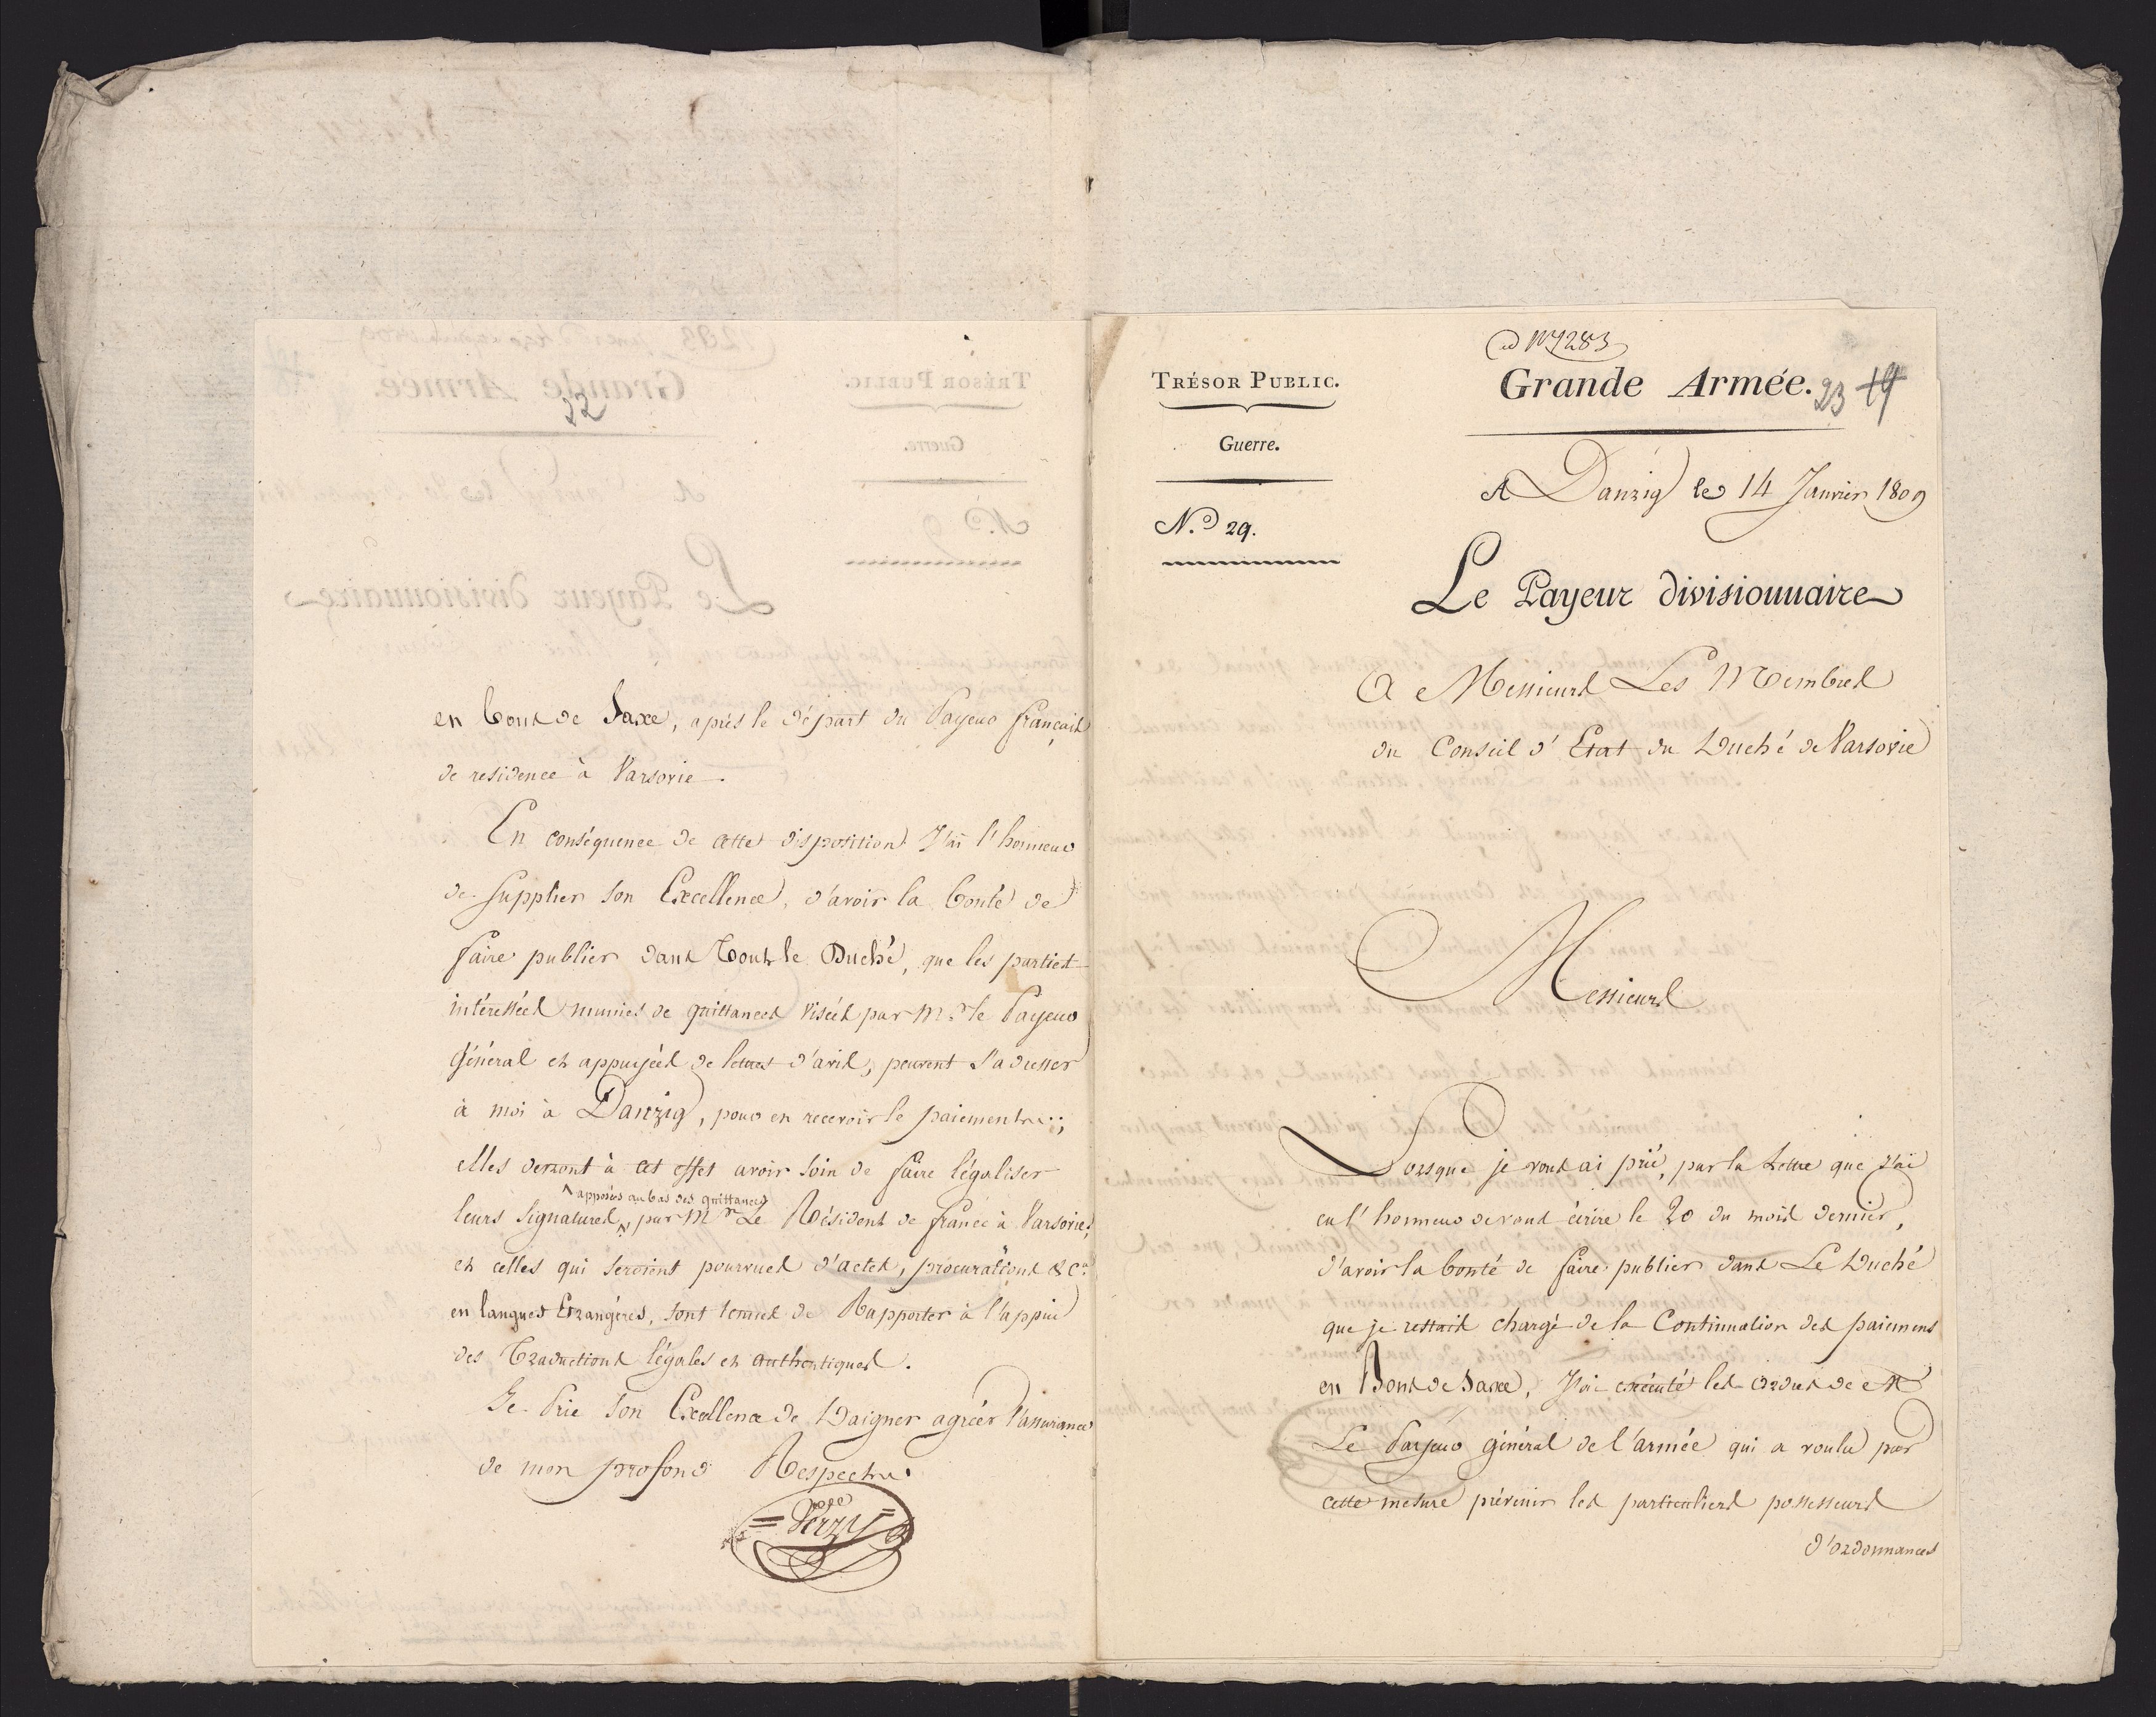 22
en bons de Saxe, après le départ du Payeur français
de residence à Varsovie.
En conséquence de cette disposition J'ai l'honneur
de supplier son Excellence, d'avoir la bonté de
faire publier dans tout le Duché, que les parties
intéressées munies de quittances visées par Mr. le Payeur
Général et appuyées de lettres d'avis, peuvent s'adresser
à moi à Danzig, pour en recevoir le paiement;
elles devront à cet effet avoir soin de faire légaliser
apposées au bas des quittances
leurs signatures, par Mr Le Résident de france à Varsovie,
et celles qui seroient pourvues d'actes, procurations &ca.
en langues Etrangères, sont tenues de Rapporter à l'appui
des Traductions légales et authentiques.
Je Prie Son Excellence de Daigner agréer l'assurance
de mon profond Respect.
TRÉSOR PUBLIC.
Guerre.
N.o 29.
ad N 1283
Grande Armée.
23 19
A Danzig le 14 Janvier 1809
Le Payeur divisionnaire
A Messieurs Les Membres
du Conseil d'Etat du Duché de Varsovie
Messieurs
Lorsque je vous ai prié, par la Lettre que j'ai
eu l'honneur de vous écrire le 20 du mois dernier,
d'avoir la bonté de faire publier dans Le Duché
que je restais chargé de la Continuation des paiemens
en Bons de Saxe, J'ai exécuté les ordres de Mr
Le Payeur général de l'armée qui a voulu par
cette mesure prévenir les particuliers possesseurs
d'ordonnances